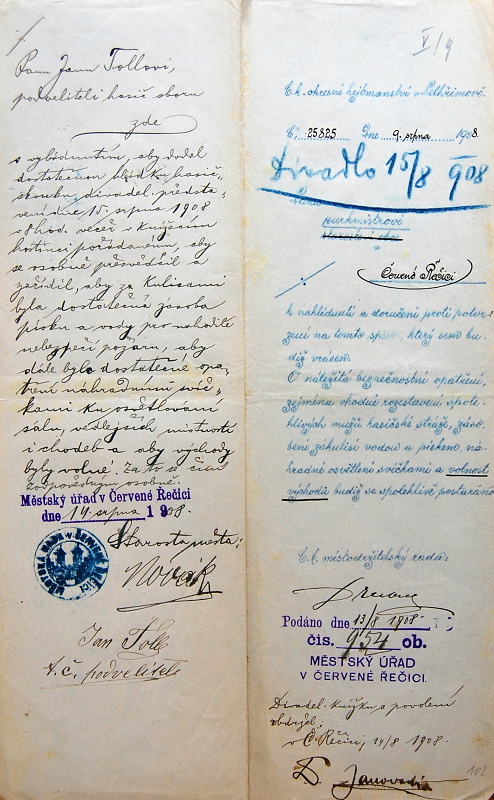 Panu Janu Tollovi,
podveliteli hasič. sboru
zde
s vybídnutím, aby dodal
dostatečnou hlídku hasič-
skou ku divadel. předsta-
vení dne 15. srpna 1908
8 hod. večer v Knížecím
hostinci pořádaném, aby
se osobně přesvědčil a
zařídil, aby za kulisami
byla dostatečná zásoba
písku a vody pro nahodilé
nebezpečí požáru, aby
dále bylo dostatečně opa-
třeno náhradními svíč-
kami ku osvětlování
sálu, vedlejších místností
i chodeb a aby východy
byly volné, za to se činí
zodpovědným osobně.
Městský úřad v Červené Řečici
dne 14. srpna 1908.
Starosta města:
Novák
Jan Toll
t. č. podvelitel
V/4
C. k. okresní hejtmanství v Pelhřimově.
Č. 25325 Dne 9. srpna 1908.
Divadlo 15/8 908
purkmistrovi
Červené Řečici
k nahlédnutí a doručení proti potvr-
zení na tomto spise, který sem bu-
diž vrácen.
O náležitá bezpečnostní opatření,
zejména vhodné rozestavení spole-
hlivých mužů hasičské stráže, záso-
bení zákulisí vodou a pískem, ná-
hradné osvětlení svíčkami a volnost
východů budiž se spolehlivě postaráno.
C. k. místodržitelský rada:
Podáno dne 13/8 1908
čís. 954 ob.
MĚSTSKÝ ÚŘAD
V ČERVENÉ ŘEČICI.
Divadel. knížku s povolení
obdržel:
v Č. Řečici, 14/8 1908.
102